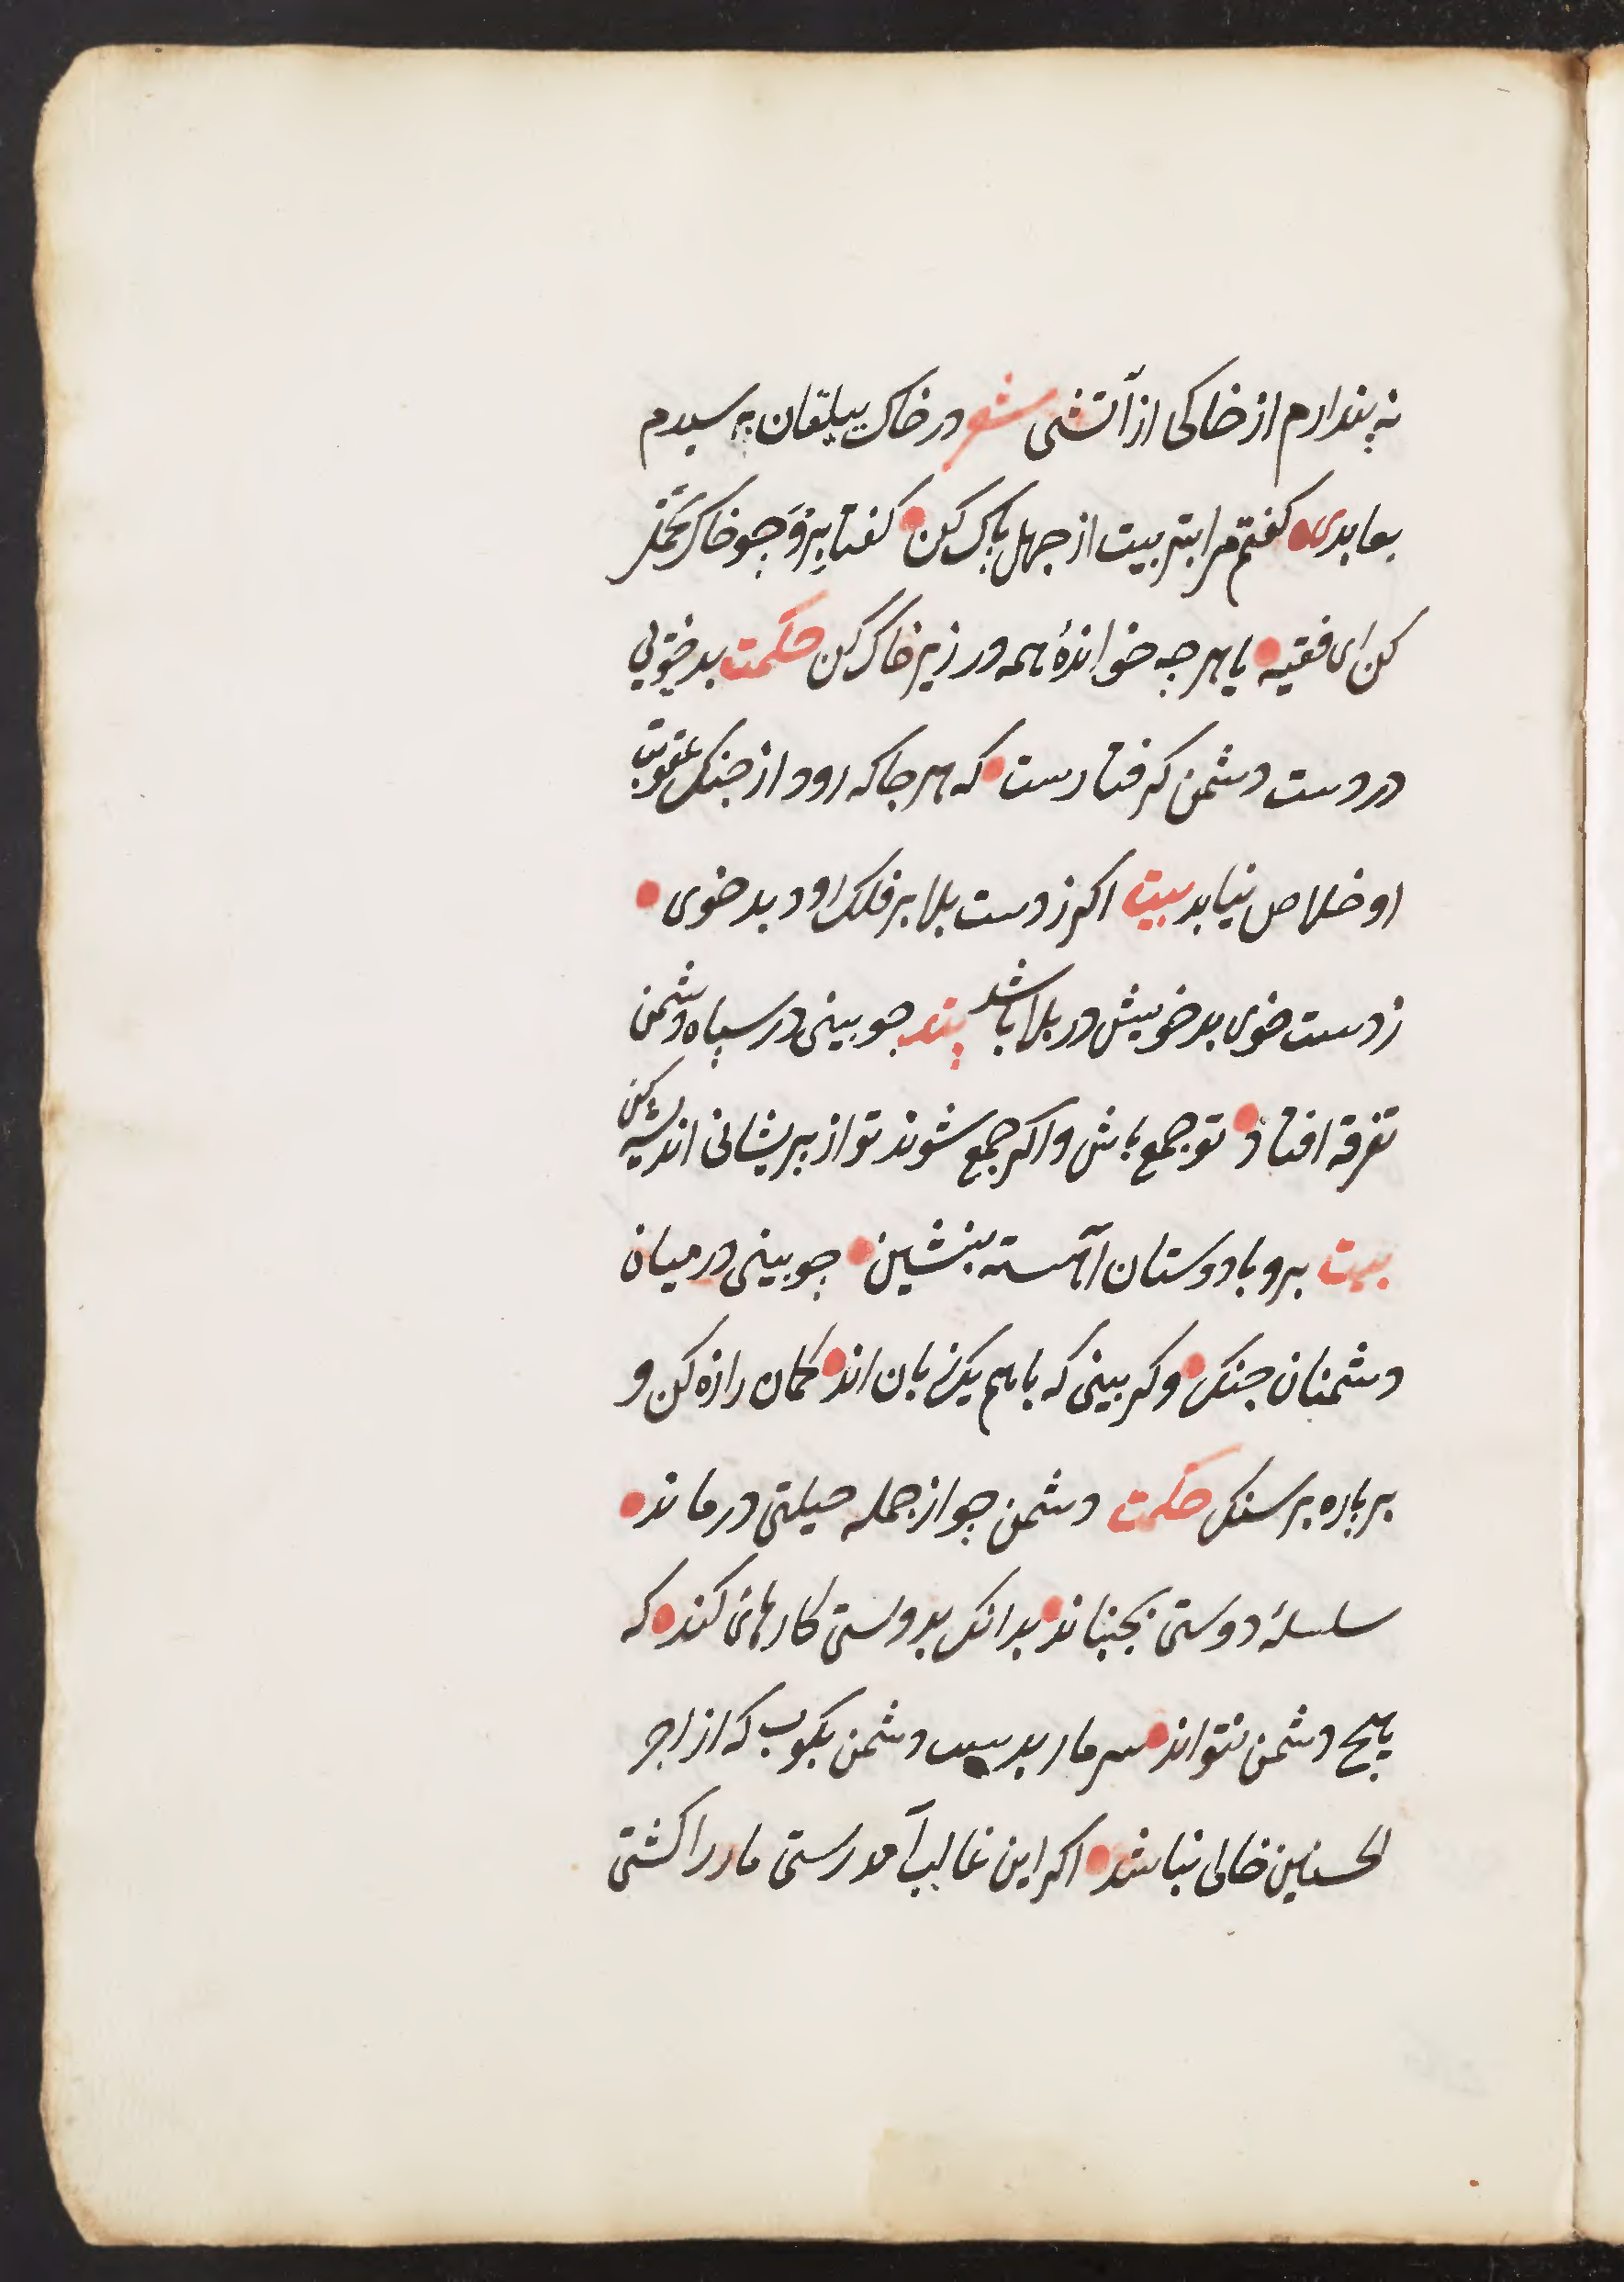 نه پندارم از خاکی از آتشی شعر در خاک بیلقان برسیدم
بعابدی کفتم مرا بتربیت از جهل پاک کن کفتا بِرَوْ چو خاک تَحَمُّلْ
کن ای فقیه یا هر چه خواندهٔ همه در زیر خاک کن حکمت بدخویی
در دست دشمن کرفتارست که هر جا که رود از جنک عقوبت
او خلاص نیابد بیت اکر ز دست بلا بر فلک رود بدخوی
ز دست خوی بد خویش در بلا باشد پند چو بینی در سپاه دشمن
تفرقه افتاد تو جمع باش و اکر جمع شوند تو از پریشانی اندیشه کن
بیت برو با دوستان آهسته بنشین چو بینی در میان
دشمنان جنک وکر بینی که با هم یک زبان اند کمان را زه کن و
بر باره بر سنک حکمت دشمن چو از جمله حیلتی درماند
سلسلهٔ دوستی بجنباند بدانک بدوستی کارهای کند که
هیچ دشمن نتواند سر مار بدست دشمن بکوب که از احد
الحسنین خالی نباشد اکر این غالب آمد رستی مار را کشتی